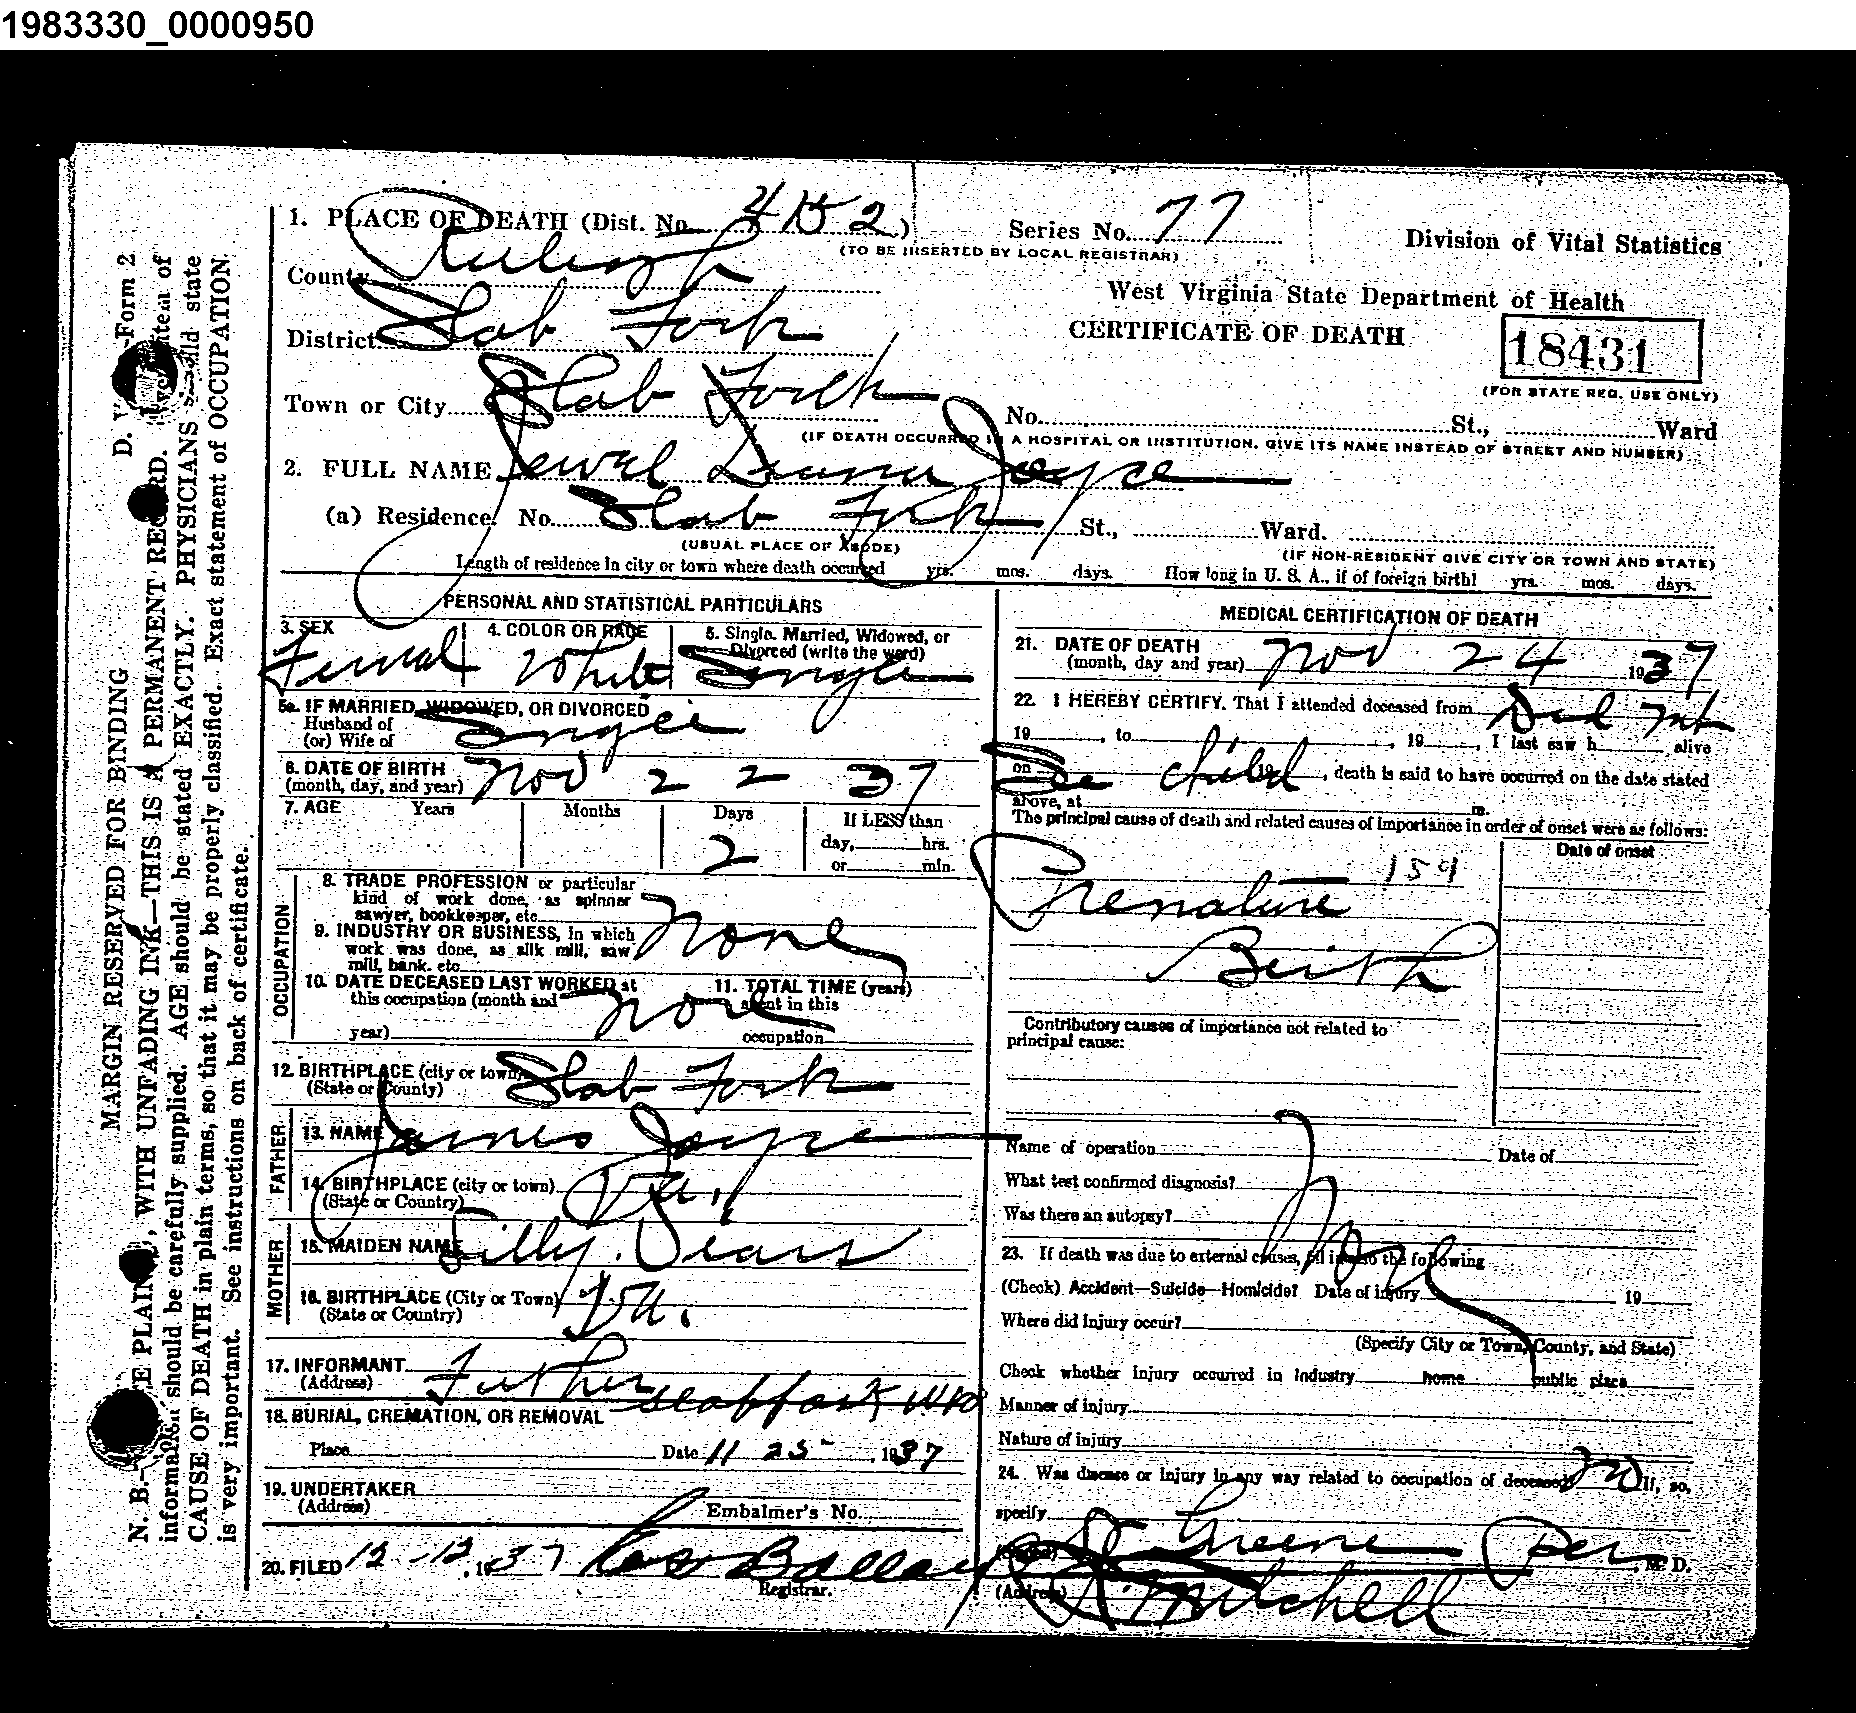 1983330_0000950
1. PLACE OF DEATH (Dist. No. 4152)
Series No. 77
Division of Vital Statistics
(TO BE INSERTED BY LOCAL REGISTRAR)
County Raleigh
West Virginia State Department of Health
District Slab Fork
CERTIFICATE OF DEATH
18431
(FOR STATE REG. USE ONLY)
Town or City Slab Fork
No. St., Ward
(IF DEATH OCCURRED IN A HOSPITAL OR INSTITUTION, GIVE ITS NAME INSTEAD OF STREET AND NUMBER)
2. FULL NAME Jewel Joyce
(a) Residence. No. Slab Fork St., Ward.
(USUAL PLACE OF ABODE)
(IF NON-RESIDENT GIVE CITY OR TOWN AND STATE)
Length of residence in city or town where death occured yrs. mos. days. How long in U. S. A., if of foreign birth! yrs. mos. days.
PERSONAL AND STATISTICAL PARTICULARS
3. SEX
Femal
4. COLOR OR RACE
White
5. Single. Married, Widowed, or
Divorced (write the word)
Single
5a. IF MARRIED, WIDOWED, OR DIVORCED
Husband of
(or) Wife of
Single
6. DATE OF BIRTH
(month, day, and year) Nov 22 37
7. AGE Years Months Days If LESS than
2 day, hrs.
or min.
OCCUPATION
8. TRADE PROFESSION or particular
kind of work done, as spinner
sawyer, bookkeeper, etc.
9. INDUSTRY OR BUSINESS, in which
work was done, as silk mill, saw
mill, bank. etc.
None
10. DATE DECEASED LAST WORKED at
this occupation (month and
year)
None
11. TOTAL TIME (years)
spent in this
occupation
12. BIRTHPLACE (city or town) Slab Fork
(State or County)
FATHER
13. NAME James Joyce
14. BIRTHPLACE (city or town) Va.
(State or Country)
MOTHER
15. MAIDEN NAME Lilly.
16. BIRTHPLACE (City or Town) Va.
(State or Country)
17. INFORMANT Father
(Address) Slabfork W Va
18. BURIAL, CREMATION, OR REMOVAL
Place Date 11 25 - 1937
19. UNDERTAKER
(Address)
Embalmer's No.
20. FILED 12 - 12, 1937
Registrar.
MEDICAL CERTIFICATION OF DEATH
21. DATE OF DEATH
(month, day and year) Nov 24 1937
22. I HEREBY CERTIFY. That I attended deceased from Did not
19 , to , 19 , I last saw h alive
on See child 19 , death is said to have occurred on the date stated
above, at m.
The principal cause of death and related causes of importance in order of onset were as follows:
Date of onset
Prenature 159
Birth
Contributory causes of importance not related to
principal cause:
Name of operation Date of
What test confirmed diagnosis?
Was there an autopsy?
None
23. If death was due to external causes, fill in also the following
(Check) Accident—Suicide—Homicide? Date of injury 19
Where did injury occur?
(Specify City or Town, County, and State)
Check whether injury occurred in industry home public place
Manner of injury
Nature of injury
24. Was disease or injury in any way related to occupation of deceased? No If, so,
specify
Greene Per M. D.
(Address) Mitchell
MARGIN RESERVED FOR BINDING
N. B.— PLAINLY, WITH UNFADING INK—THIS IS A PERMANENT RECORD. item of
information should be carefully supplied. AGE should be stated EXACTLY. PHYSICIANS should state
CAUSE OF DEATH in plain terms, so that it may be properly classified. Exact statement of OCCUPATION
is very important. See instructions on back of certificate.